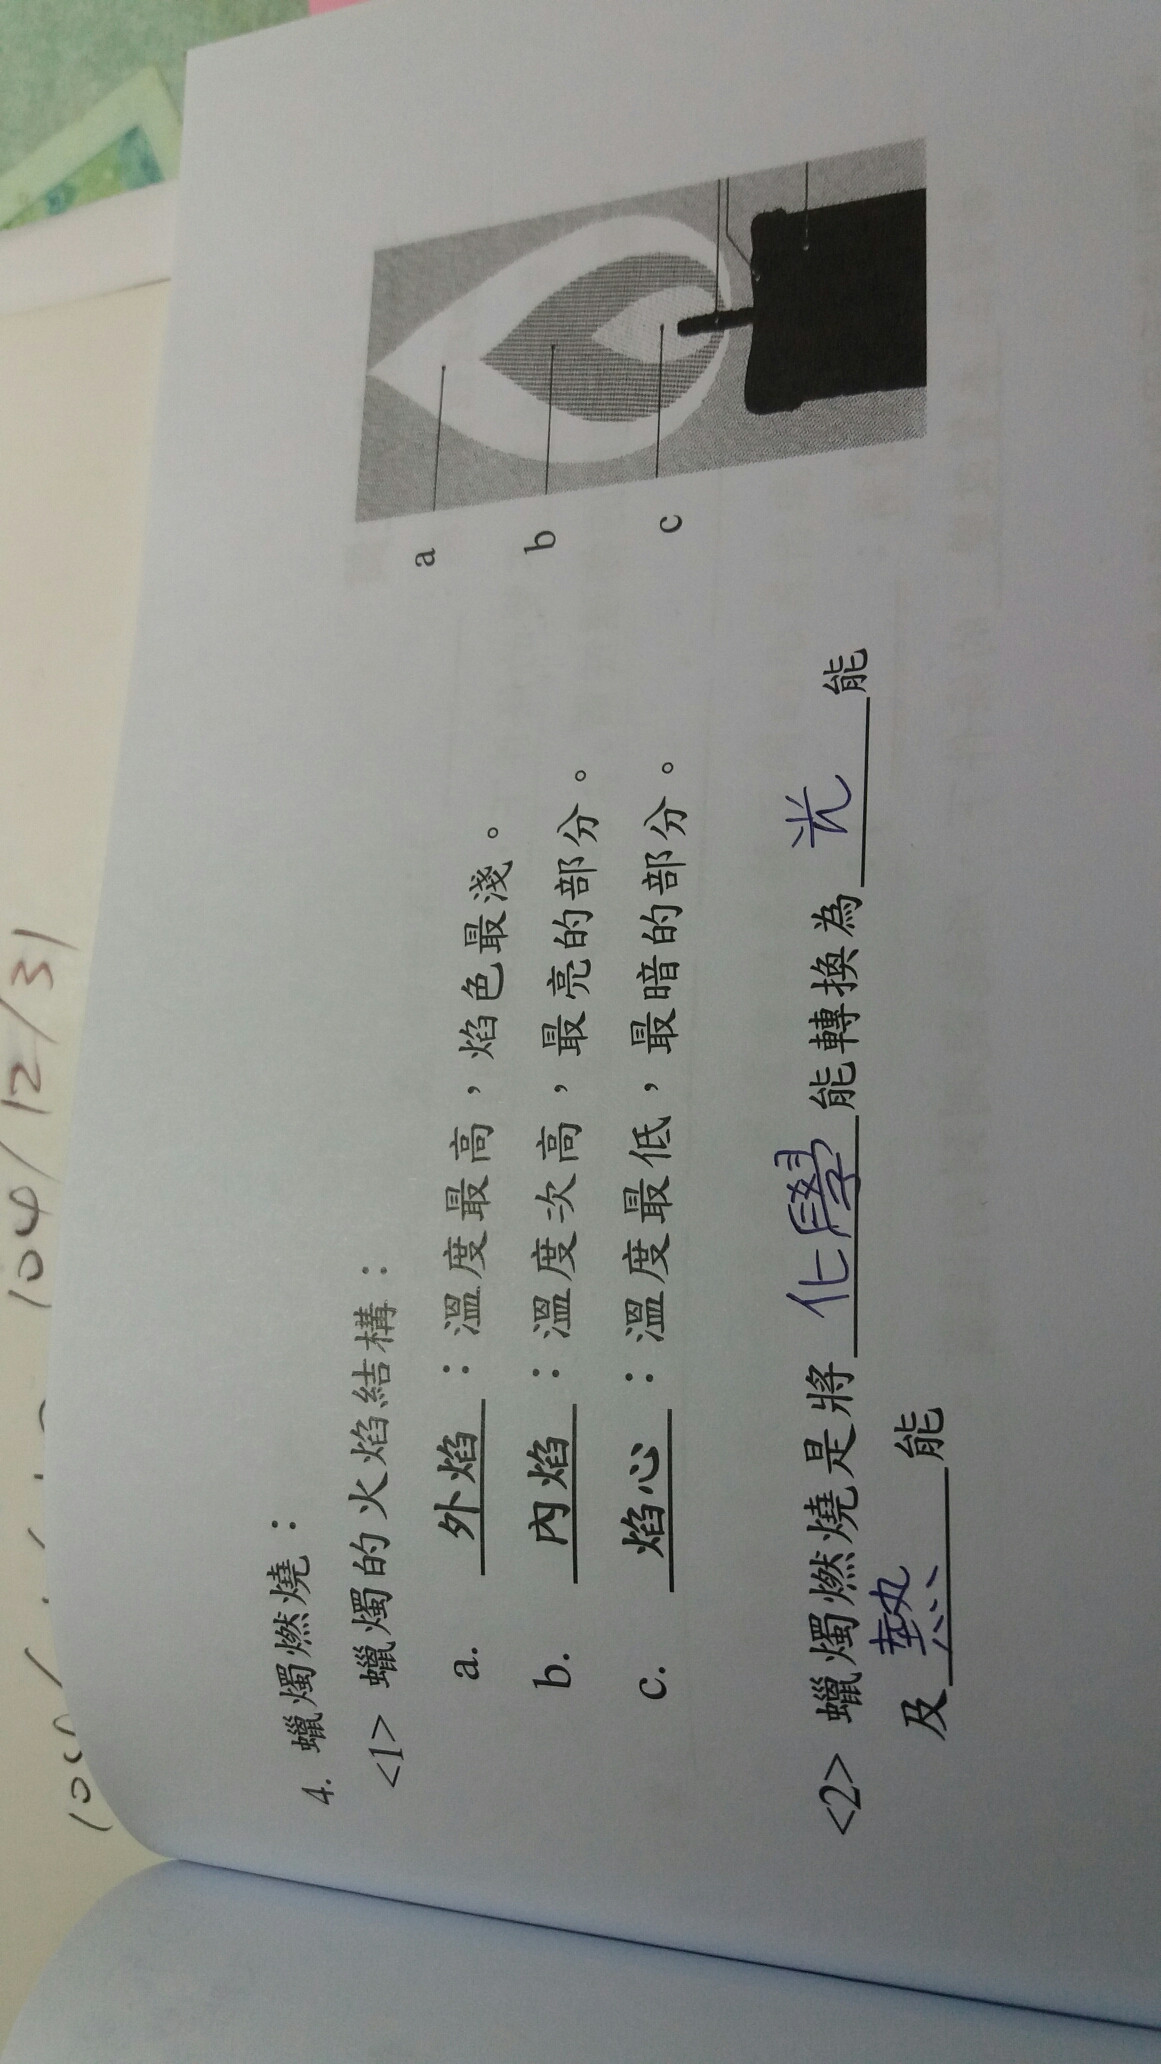 104/12/31
4. 蠟燭燃燒：
<1> 蠟燭的火焰結構：
a. 外焰：溫度最高，焰色最淺。
b. 內焰：溫度次高，最亮的部分。
c. 焰心：溫度最低，最暗的部分。
a
b
c
<2> 蠟燭燃燒是將化學能轉換為光能
及熱能